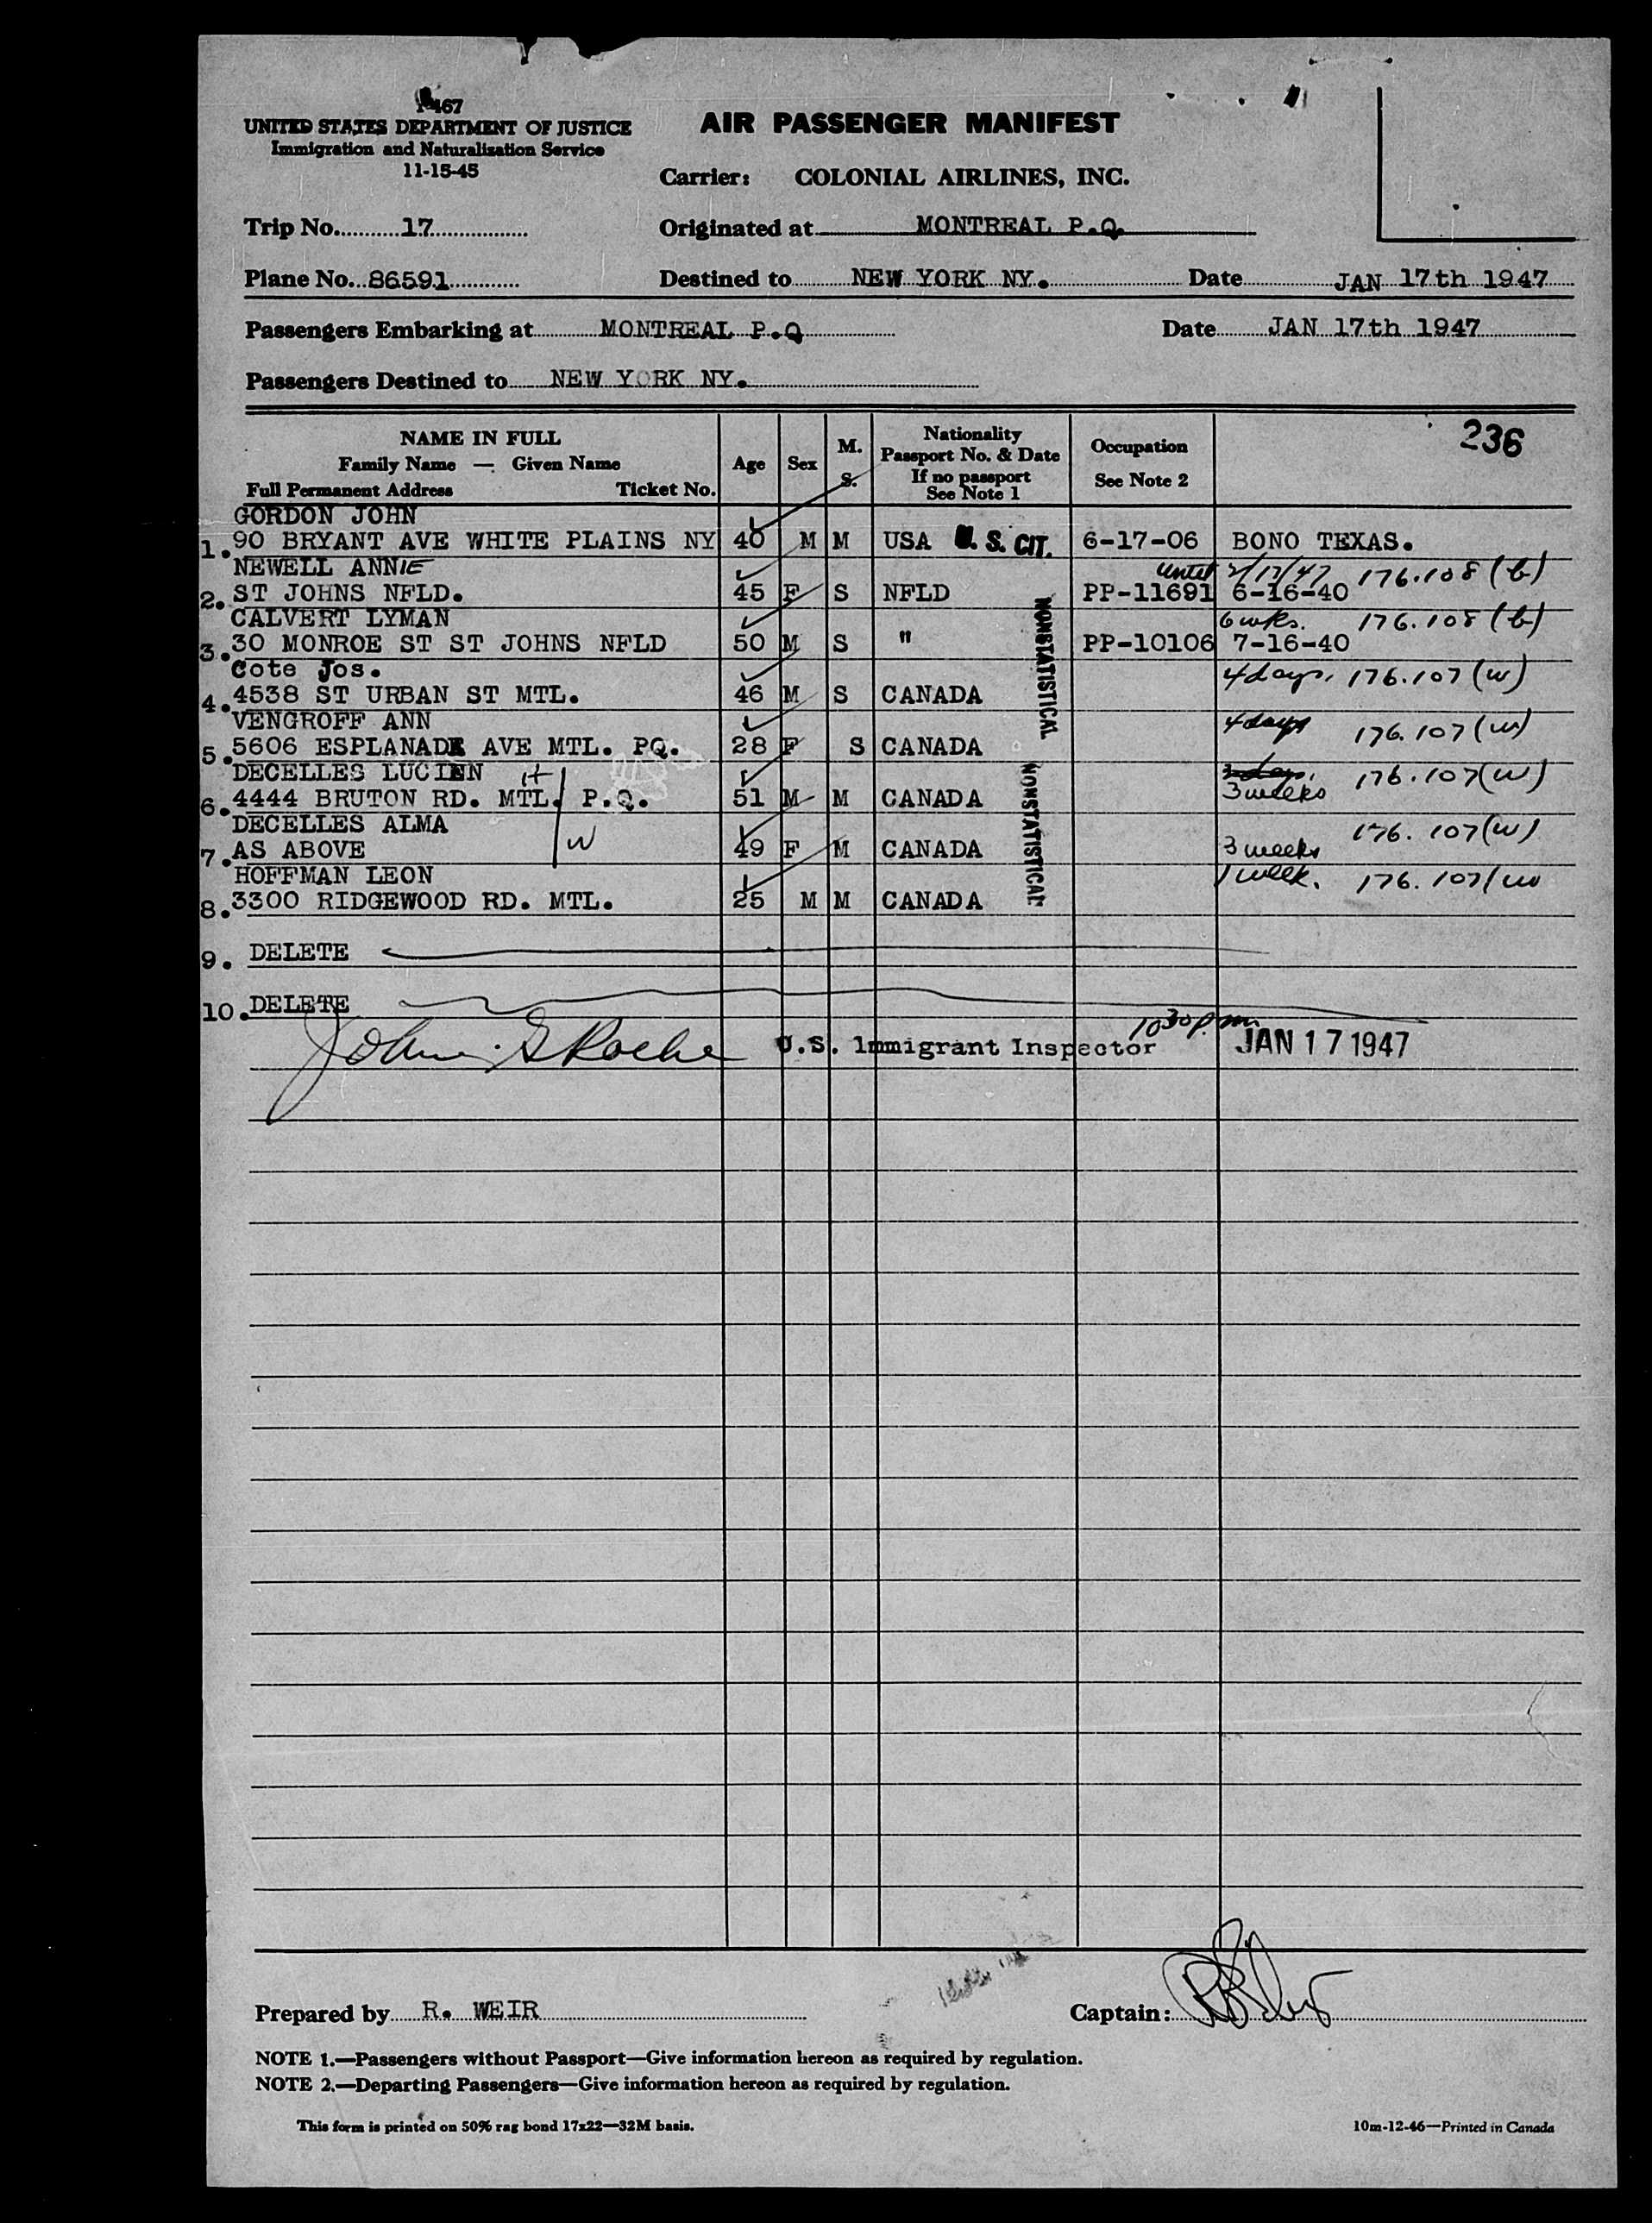 467
UNITED STATES DEPARTMENT OF JUSTICE
Immigration and Naturalization Service
11-15-45
AIR PASSENGER MANIFEST
Carrier: COLONIAL AIRLINES, INC.
Trip No. 17 Originated at MONTREAL P.Q.
Plane No. 86591 Destined to NEW YORK NY. Date JAN 17th 1947
Passengers Embarking at MONTREAL P.Q Date JAN 17th 1947
Passengers Destined to NEW YORK NY.
NAME IN FULL
Family Name — Given Name
Full Permanent Address Ticket No.
Age
Sex
M.
S.
Nationality
Passport No. & Date
If no passport
See Note 1
Occupation
See Note 2
236
GORDON JOHN
1. 90 BRYANT AVE WHITE PLAINS NY 40 M M USA U.S. CIT. 6-17-06 BONO TEXAS.
NEWELL ANNIE until 2/17/47 176.108 (b)
2. ST JOHNS NFLD. 45 F S NFLD PP-11691 6-16-40
CALVERT LYMAN 6 wks. 176.108 (b)
3. 30 MONROE ST ST JOHNS NFLD 50 M S " PP-10106 7-16-40
Cote Jos. 4 days. 176.107 (w)
4. 4538 ST URBAN ST MTL. 46 M S CANADA
NONSTATISTICAL
VENGROFF ANN 4 days 176.107 (w)
5. 5606 ESPLANADE AVE MTL. PQ. 28 F S CANADA
DECELLES LUCIEN H 3 days. 176.107 (w)
6. 4444 BRUTON RD. MTL. P.Q. 51 M M CANADA 3 weeks
DECELLES ALMA 176.107 (w)
7. AS ABOVE W 49 F M CANADA 3 weeks
NONSTATISTICAL
HOFFMAN LEON 1 week. 176.107 (w
8. 3300 RIDGEWOOD RD. MTL. 25 M M CANADA
9. DELETE
10. DELETE
John S Roche U.S. Immigrant Inspector 10 30 p.m. JAN 17 1947
Prepared by R. WEIR Captain:
NOTE 1.—Passengers without Passport—Give information hereon as required by regulation.
NOTE 2.—Departing Passengers—Give information hereon as required by regulation.
This form is printed on 50% rag bond 17x22—32M basis. 10m-12-46—Printed in Canada